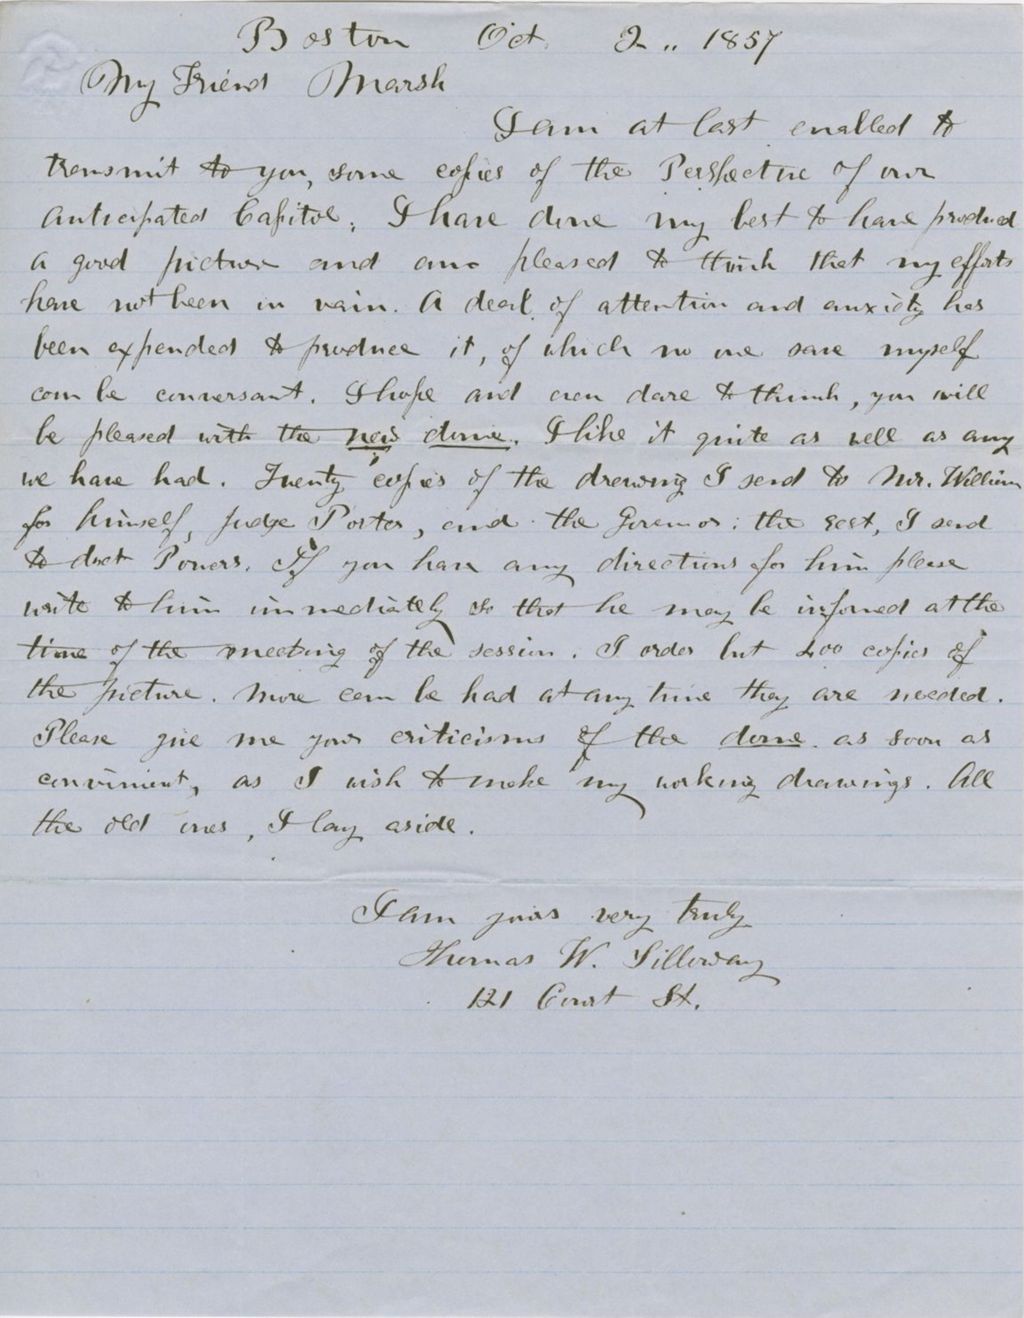 Boston Oct. 2,, 1857
My Friend Marsh
I am at last enabled to
transmit to you, some copies of the Perspective of our
anticipated Capitol. I have done my best to have produced
a good picture and am pleased to think that my efforts
have not been in vain. A deal of attention and anxiety has
been expended to produce it, of which no one save myself
can be conversant. I hope and even dare to think, you will
be pleased with the new dome. I like it quite as well as any
we have had. Twenty copies of the drawing I send to Mr. William
for himself, Judge Porter, and the Governor; the rest, I send
to doct Powers. If you have any directions for him please
write to him immediately so that he may be informed at the
time of the meeting of the session. I order but 200 copies of
the picture. More can be had at any time they are needed.
Please give me your criticisms of the dome as soon as
convinient, as I wish to make my working drawings. All
the old ones, I lay aside.
I am yours very truly
Thomas W. Silloway
121 Court St.